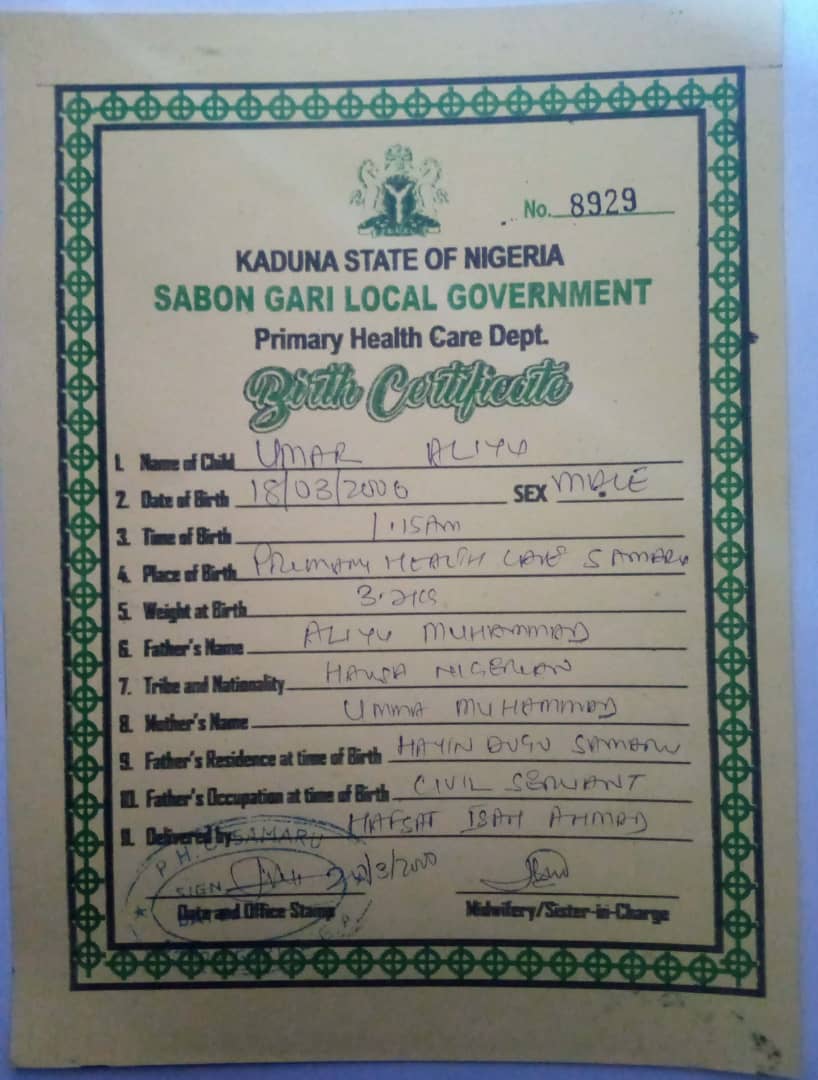 No. 8929
KADUNA STATE OF NIGERIA
SABON GARI LOCAL GOVERNMENT
Primary Health Care Dept.
Birth Certificate
1. Name of Child UMAR ALIYU
2. Date of Birth 18/03/2000 SEX MALE
3. Time of Birth 1:15AM
4. Place of Birth PRIMARY HEALTH CARE SAMARU
5. Weight at Birth 3.2KG
6. Father's Name ALIYU MUHAMMAD
7. Tribe and Nationality HAUSA NIGERIAN
8. Mother's Name UMMA MUHAMMAD
9. Father's Residence at time of Birth HAYIN DOGO SAMARU
10. Father's Occupation at time of Birth CIVIL SERVANT
11. Delivered by HAFSAT ISAH AHMAD
P.H.C SAMARU
SIGN /3/2000
Date and Office Stamp Midwifery/Sister-in-Charge